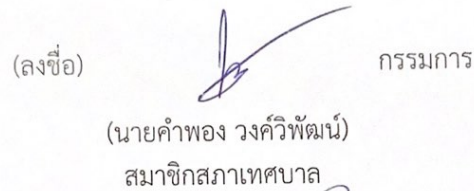 (ลงชื่อ) กรรมการ
(นายคำพอง วงค์วิพัฒน์)
สมาชิกสภาเทศบาล